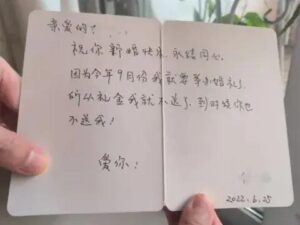 亲爱的:
祝你新婚快乐,永结同心。
因为今年9月份我就要举办婚礼了,
所以礼金我就不送了,到时候你也
不送我!
爱你!
2022.6.25